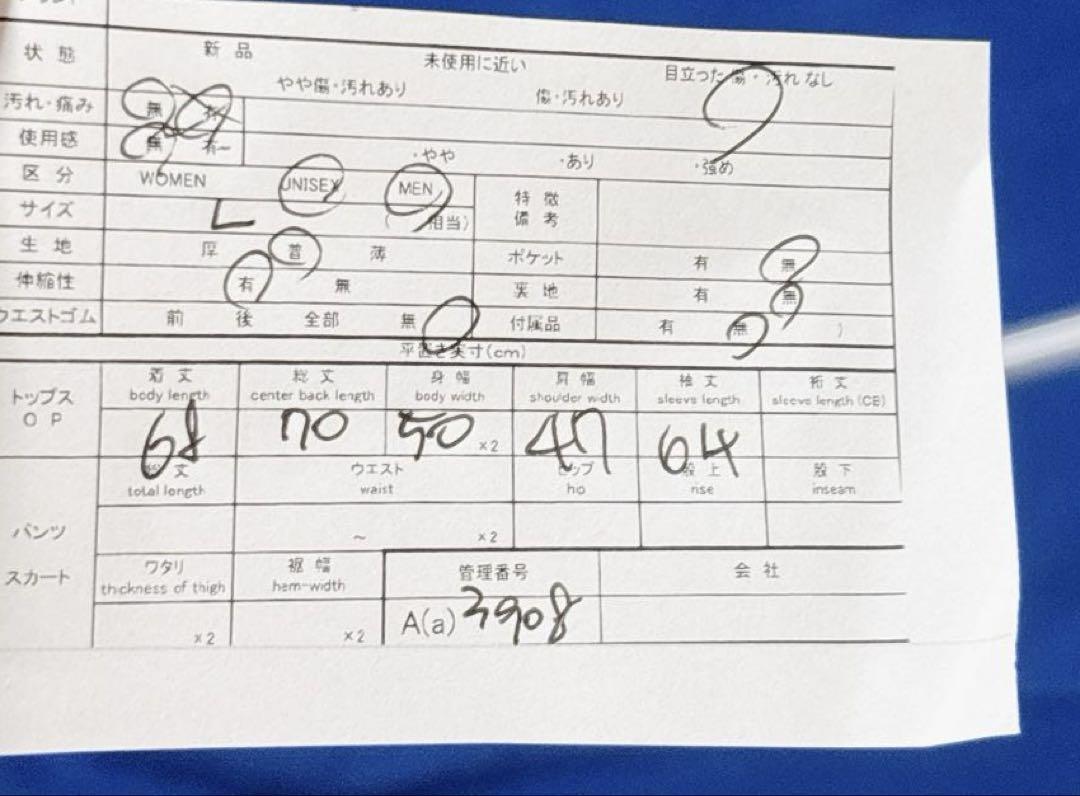 状態 新品 未使用に近い 目立った傷・汚れなし
やや傷・汚れあり 傷・汚れあり
汚れ・痛み 無 有
使用感 無 有 ・やや ・あり ・強め
区分 WOMEN UNISEX MEN 特徴
備考
サイズ L ( 相当)
生地 厚 普 薄 ポケット 有 無
伸縮性 有 無 裏地 有 無
ウエストゴム 前 後 全部 無 付属品 有 無 )
平置き実寸(cm)
トップス
OP
着丈 総丈 身幅 肩幅 袖丈 裄丈
body length center back length body width shoulder width sleeve length sleeve length (CB)
68 70 50 ×2 47 64
総丈 ウエスト ヒップ 股上 股下
total length waist hip rise inseam
パンツ ~ ×2
スカート
ワタリ 裾幅 管理番号 会社
thickness of thigh hem-width
×2 ×2 A(a) 3908